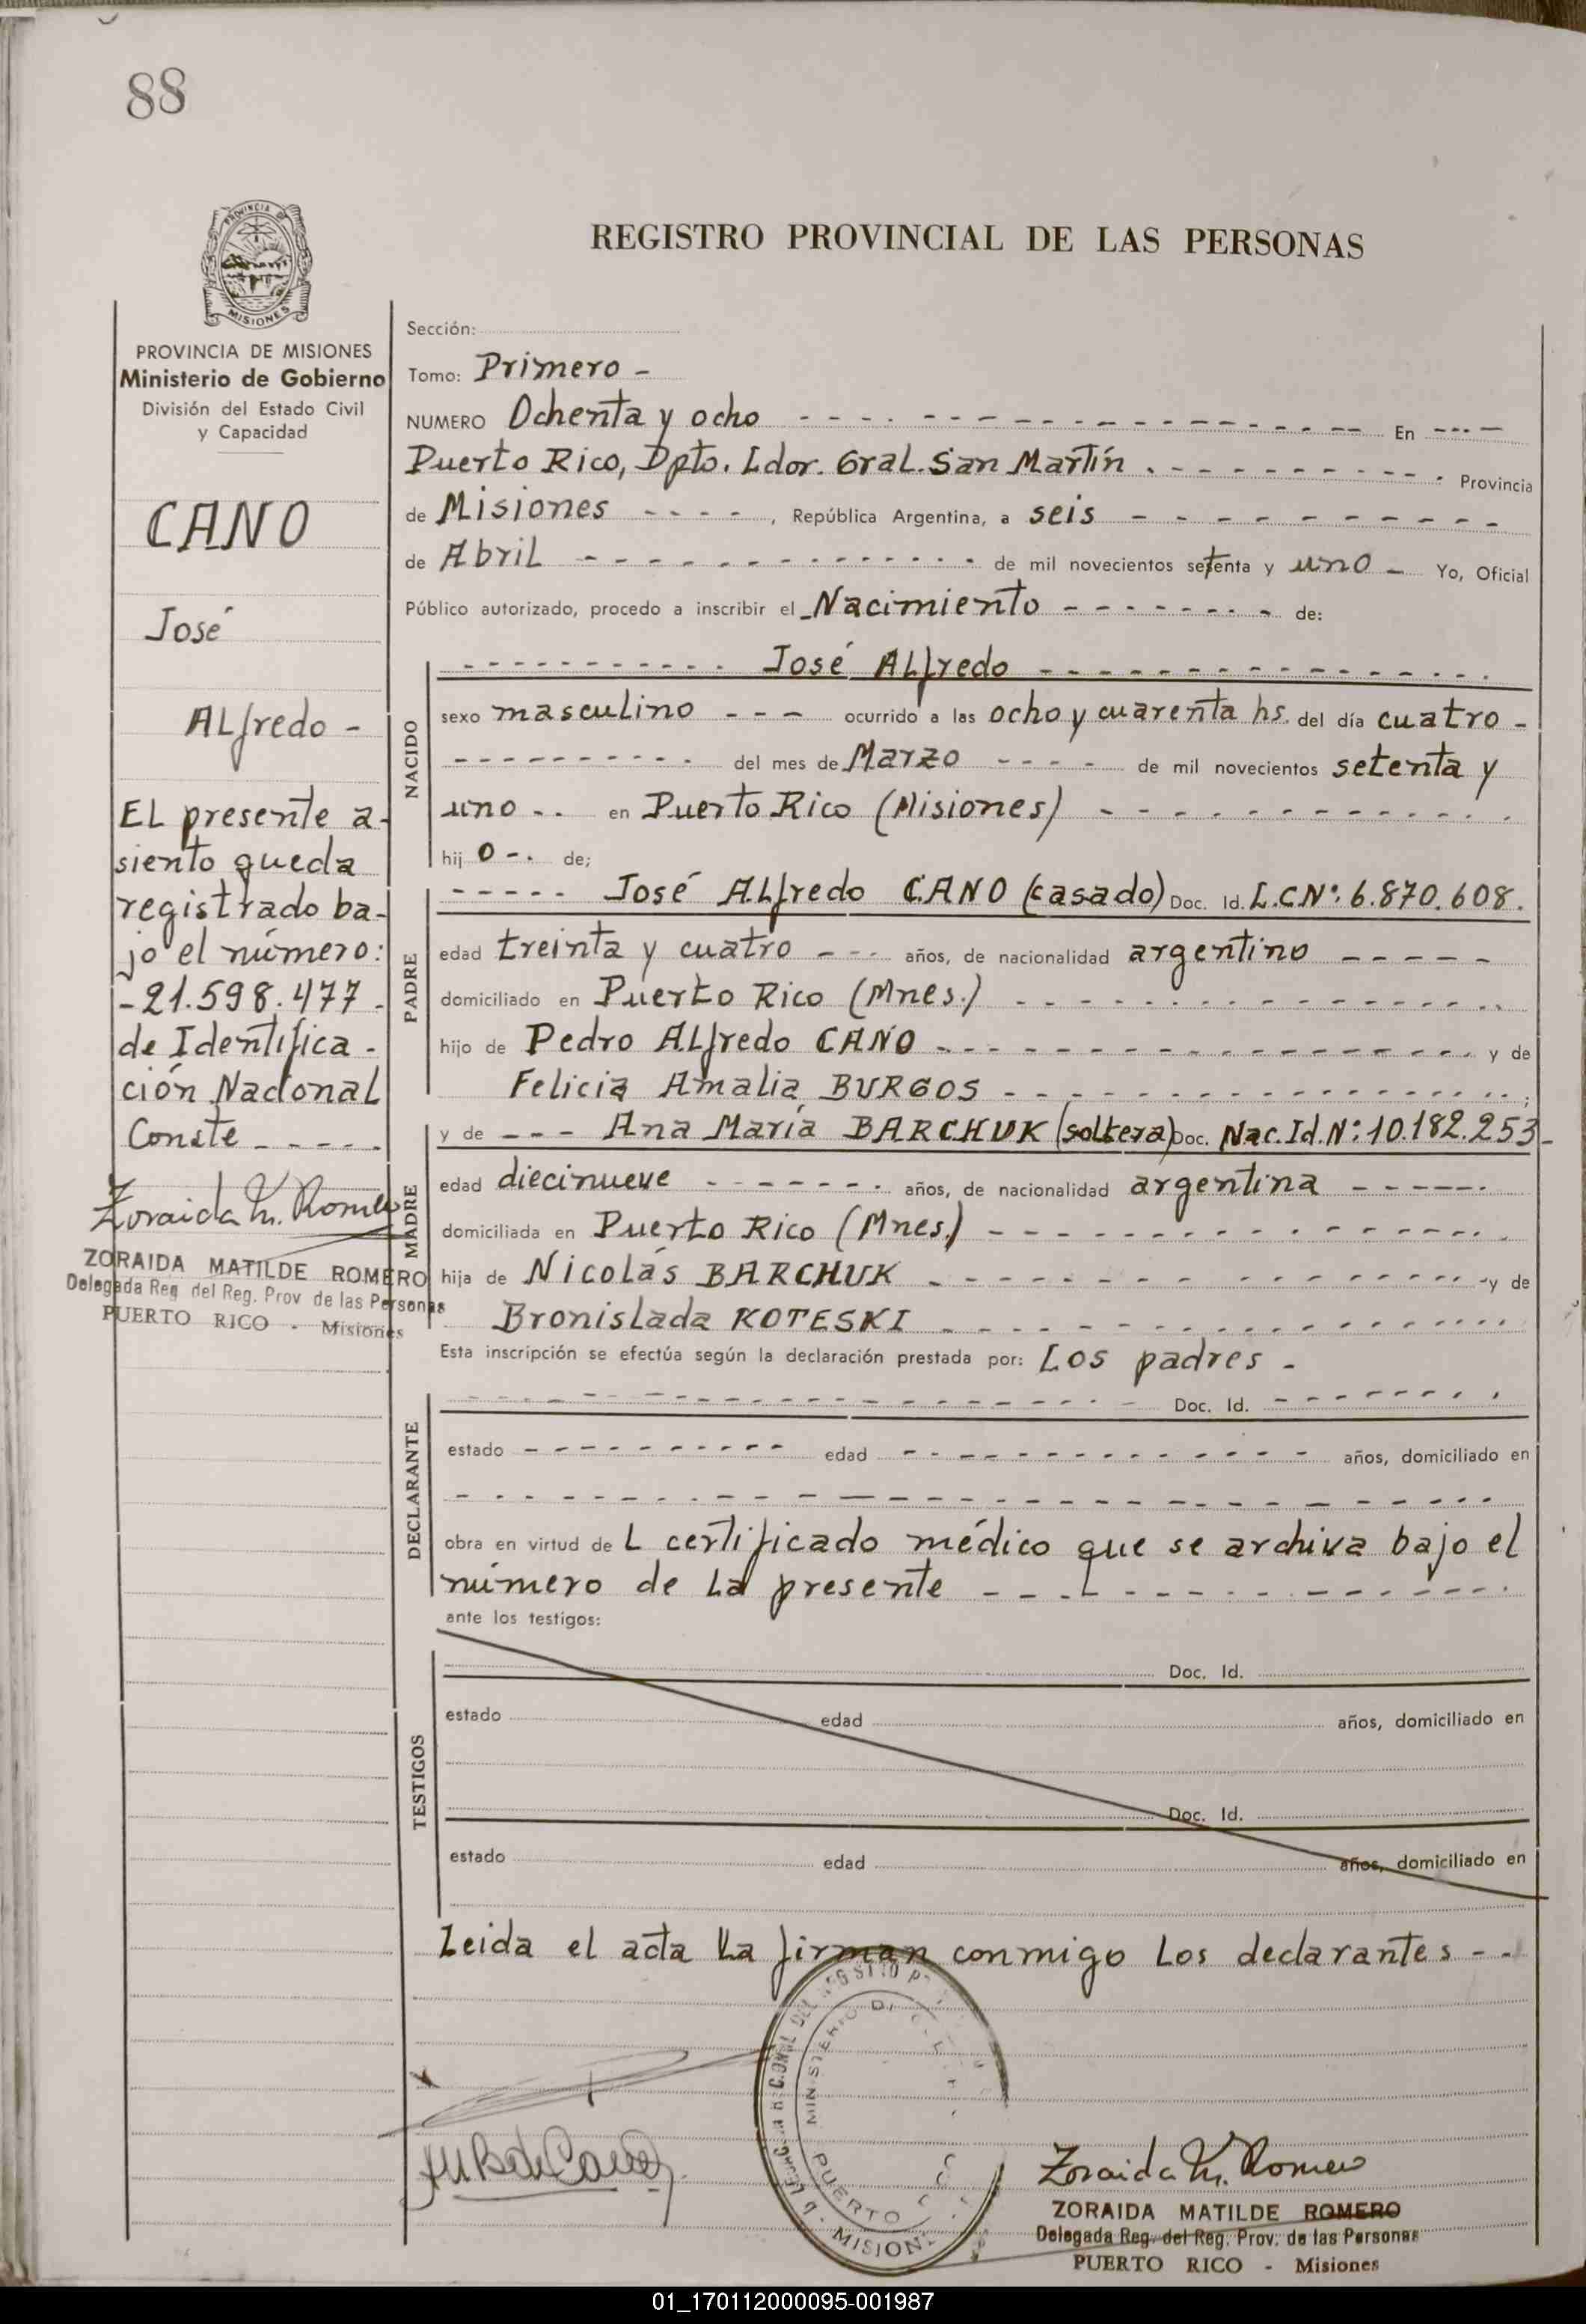 88
PROVINCIA DE
MISIONES
REGISTRO PROVINCIAL DE LAS PERSONAS
PROVINCIA DE MISIONES
Ministerio de Gobierno
División del Estado Civil
y Capacidad
CANO
José
ALfredo -
EL presente a-
siento queda
registrado ba-
jo el número:
- 21.598.477 -
de Identifica -
ción Nacional
Conste - - - - -
Zoraida M. Romero
ZORAIDA MATILDE ROMERO
Delegada Reg. del Reg. Prov de las Personas
PUERTO RICO - Misiones
Sección:
Tomo: Primero -
NUMERO Ochenta y ocho - - - - En - - -
Puerto Rico, Dpto. Ldor. Gral. San Martín . - - - - Provincia
de Misiones - - - - , República Argentina, a seis - - - -
de Abril - - - - de mil novecientos setenta y uno - Yo, Oficial
Público autorizado, procedo a inscribir el Nacimiento - - - - de:
NACIDO
- - - - José ALfredo - - - -
sexo masculino - - - ocurrido a las ocho y cuarenta hs. del día cuatro -
- - - - del mes de Marzo - - - - de mil novecientos setenta y
uno - - en Puerto Rico (Misiones) - - - -
hij o -. de;
PADRE
- - - - - José ALfredo CANO (casado) Doc. Id. L.C.Nº: 6.870.608.
edad treinta y cuatro - - - años, de nacionalidad argentino - - - - -
domiciliado en Puerto Rico (Mnes.) - - - -
hijo de Pedro ALfredo CANO - - - - y de
Felicia Amalia BURGOS - - - - ;
MADRE
y de - - - Ana María BARCHUK (soltera) Doc. Nac.Id.Nº: 10.182.253 -
edad diecinueve - - - - años, de nacionalidad argentina - - - - -
domiciliada en Puerto Rico (Mnes.) - - - -
hija de Nicolás BARCHUK - - - - y de
Bronislada KOTESKI - - - -
Esta inscripción se efectúa según la declaración prestada por: Los padres -
DECLARANTE
- - - - Doc. Id. - - - -
estado - - - - edad - - - - años, domiciliado en
- - - -
obra en virtud de L certificado médico que se archiva bajo el
número de la presente - - - -
ante los testigos:
TESTIGOS
Doc. Id.
estado edad años, domiciliado en
Doc. Id.
estado edad años, domiciliado en
Leida el acta la firman conmigo Los declarantes - -
MINISTERIO
PUERTO
Zoraida M. Romero
ZORAIDA MATILDE ROMERO
Delegada Reg. del Reg. Prov. de las Personas
PUERTO RICO - Misiones
01_170112000095-001987